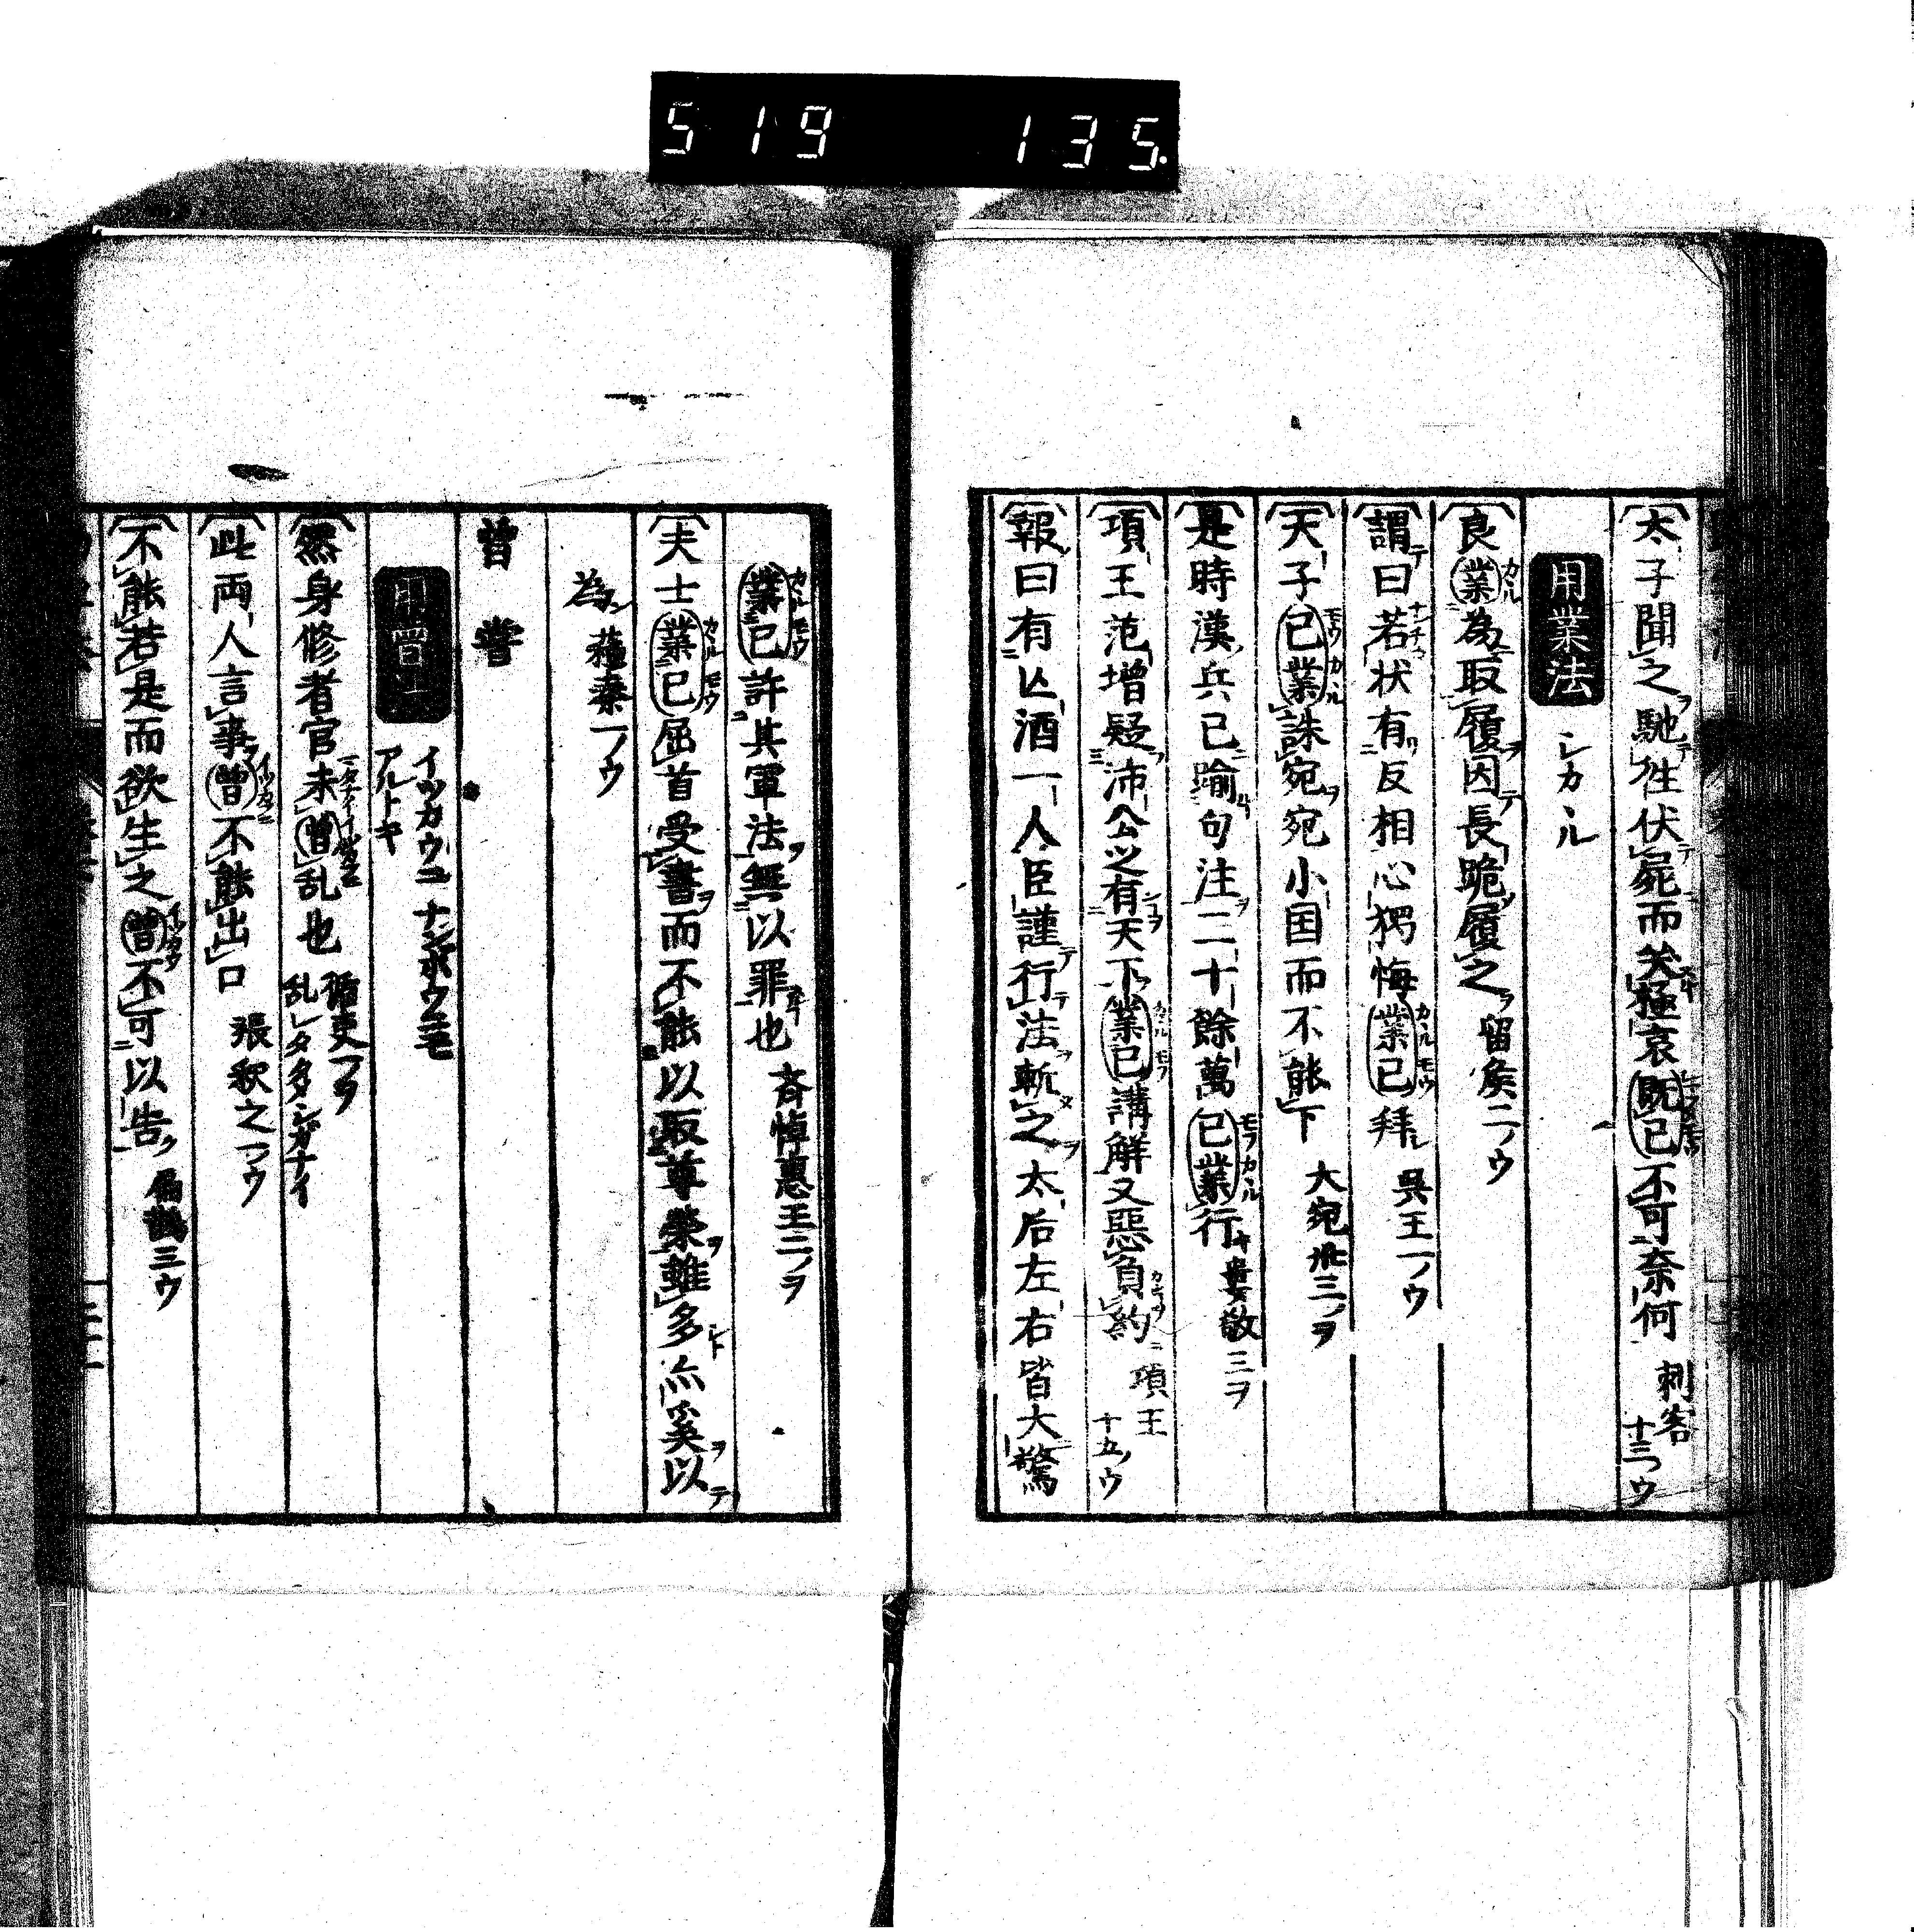 519 135.
太子聞之馳往伏屍而哭極哀既已不可奈何 刺客十三ノウ
用業法 シカール
良業為取履因長跪履之 留侯二ノウ
謂曰若状有反相心独悔業已拜 呉王一ノウ
天子已業誅宛宛小国而不能下 大宛 三ノヲ
是時漢兵已踰句注二十餘萬已業行 婁敬三ヲ
項王范增疑沛公之有天下業已講解又惡負約 項王十五ノウ
報曰有亾酒一人臣謹行法斬之太后左右皆大驚
業已許其軍法無以罪也 斉悼惠王二ノヲ
夫士業已屈首受書而不能以取尊栄雖多亦奚以
為 蘓秦一ノウ
曽 嘗
用曽法 イツカウニ ナンボウモ アルトキ
然身修者官未曽乱也 循吏一ノヲ 乱レタタメシガナイ
此両人言事曽不能出口 張釈之一ウ
不能若是而欲生之曽不可以告 扁鵲三ウ